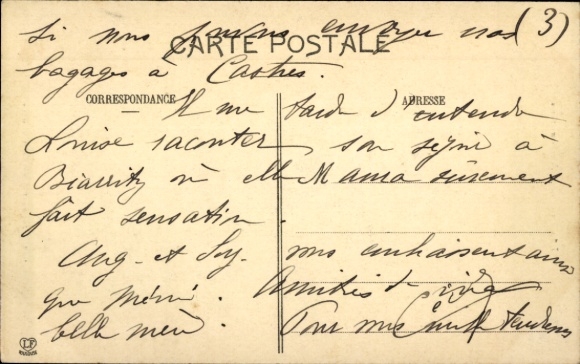 si nous envoyer nos (3)
CARTE POSTALE
bagages à Castres.
CORRESPONDANCE ADRESSE
Il me tarde d'entendre
Louise raconter son séjour à
Biarritz où elle M aura sûrement
fait sensation.
Aug. et vous embrassent ainsi
que Mémé. Amitiés
belle mère. Pour vous tendresses
LF